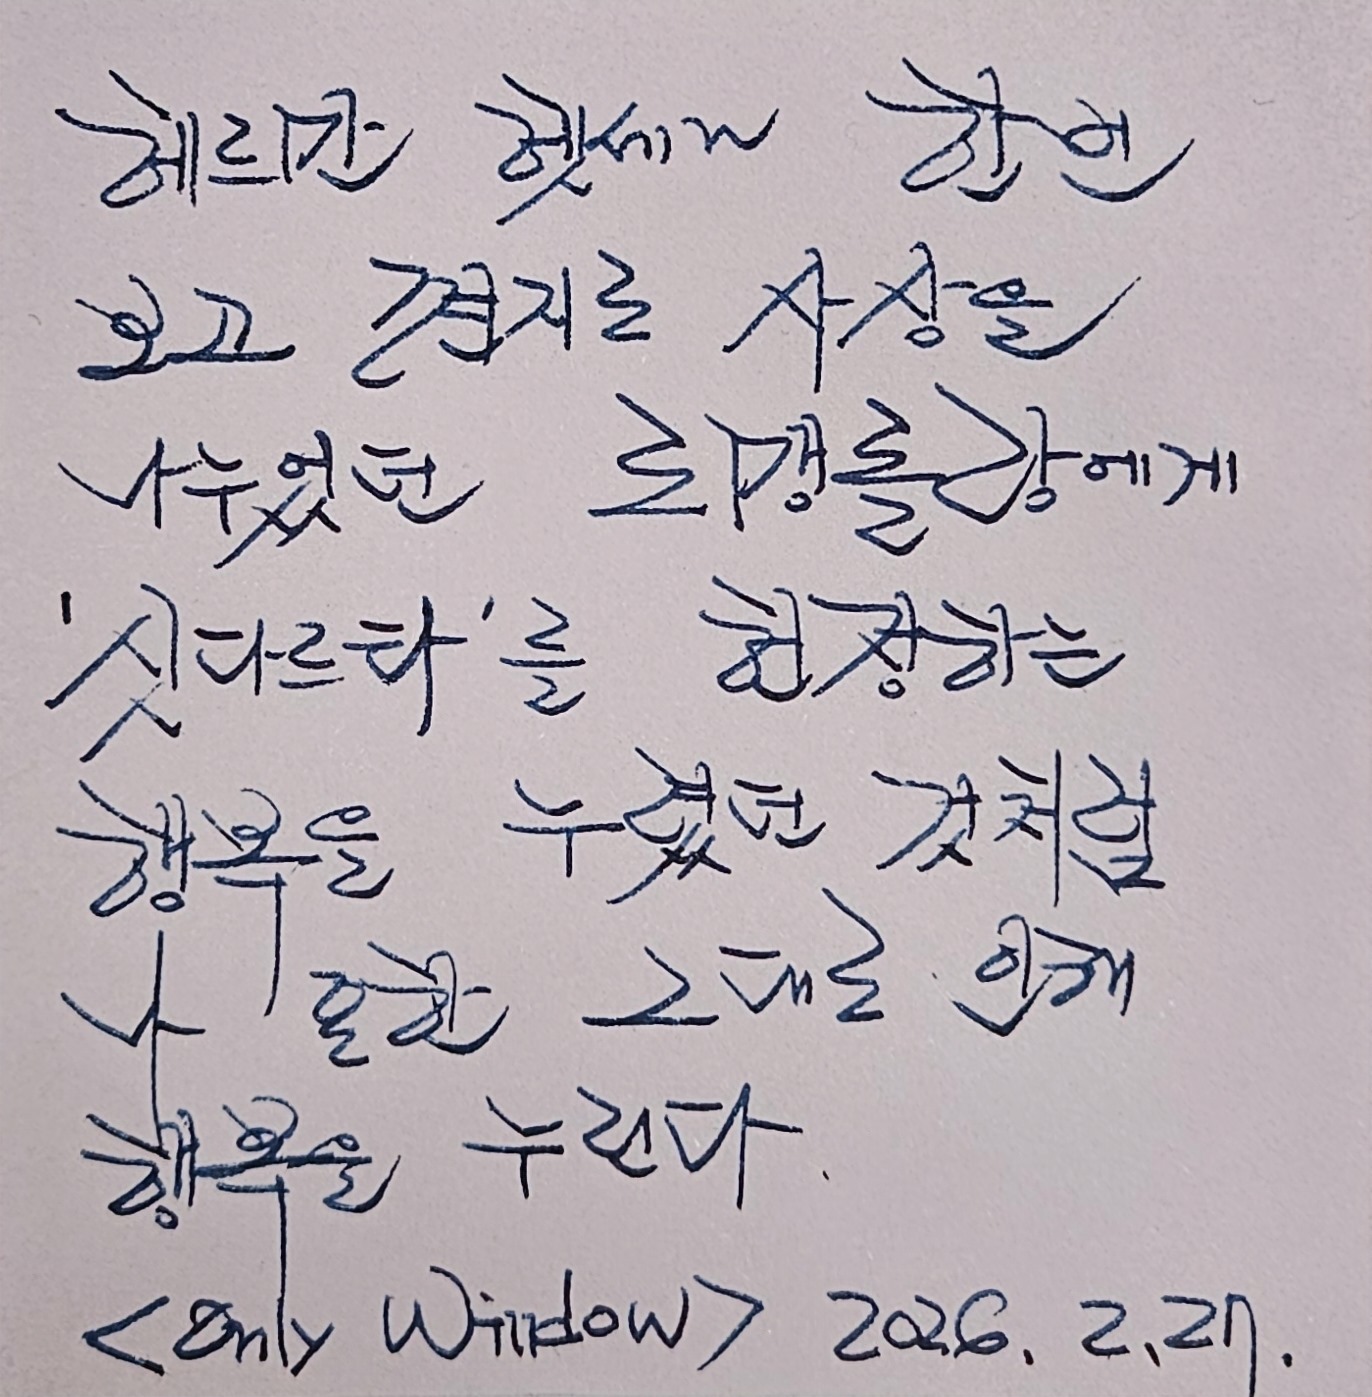 헤르만 헷세가 한번
보고 편지로 사상을
나누었던 로맹롤랑에게
'싯다르타'를 헌정하는
행복을 누렸던 것처럼
나 또한 그대로 인해
행복을 누린다.
<Only Window> 2026. 2. 27.